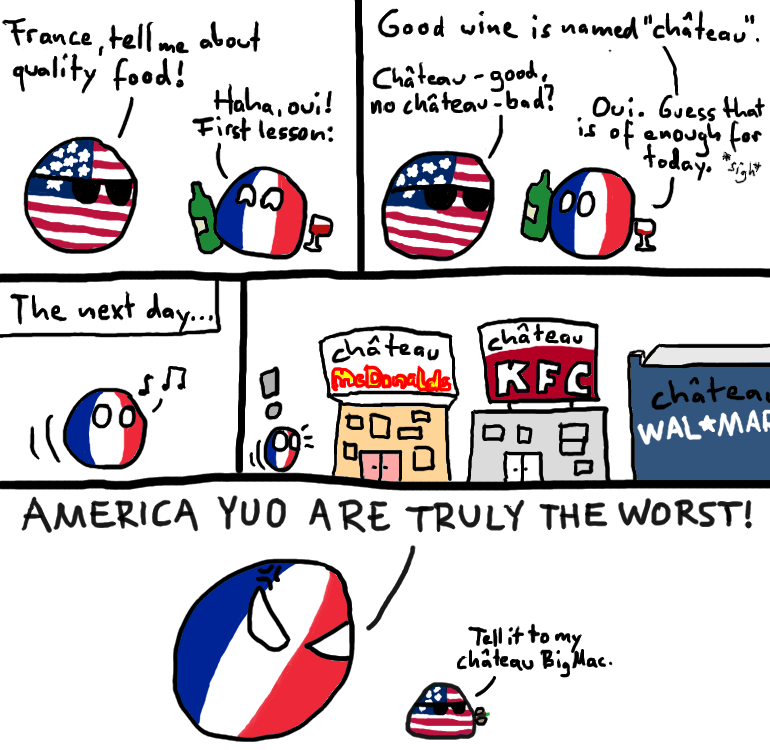 France, tell me about
quality food!
Haha, oui!
First lesson:
Good wine is named "château".
Château - good,
no château - bad?
Oui. Guess that
is of enough for
today. *sigh*
The next day...
château
McDonalds
château
KFC
château
WAL★MAR
AMERICA YUO ARE TRULY THE WORST!
Tell it to my
château BigMac.